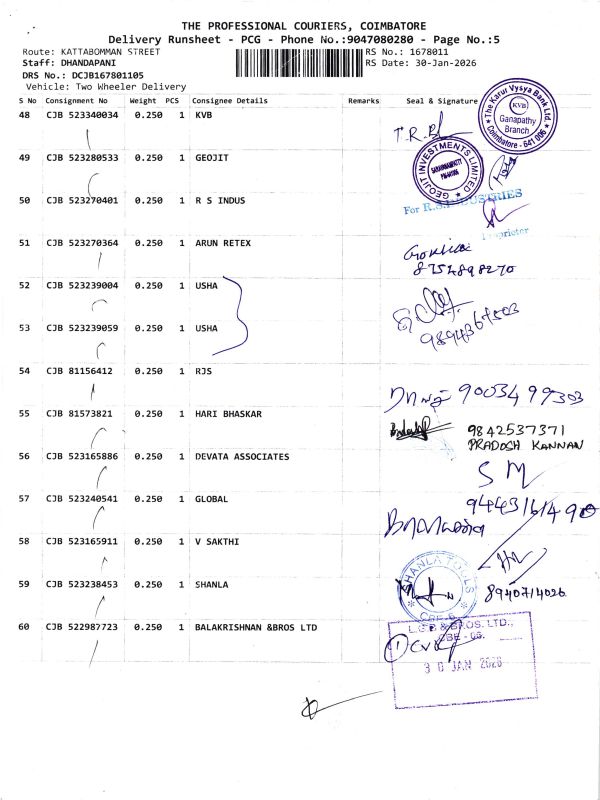 THE PROFESSIONAL COURIERS, COIMBATORE
Delivery Runsheet - PCG - Phone No.:9047080280 - Page No.:5
Route: KATTABOMMAN STREET
RS No.: 1678011
Staff: DHANDAPANI
RS Date: 30-Jan-2026
DRS No.: DCJB167801105
Vehicle: Two Wheeler Delivery
S No Consignment No Weight PCS Consignee Details Remarks Seal & Signature
48 CJB 523340034 0.250 1 KVB
The Karur Vysya Bank Ltd. KVB Ganapathy Branch Coimbatore - 641 006
T.R.B
49 CJB 523280533 0.250 1 GEOJIT
GEOJIT INVESTMENTS LIMITED
50 CJB 523270401 0.250 1 R S INDUS
For R.S. INDUSTRIES
Proprietor
51 CJB 523270364 0.250 1 ARUN RETEX
8754898270
52 CJB 523239004 0.250 1 USHA
53 CJB 523239059 0.250 1 USHA
9894364503
54 CJB 81156412 0.250 1 RJS
9003499303
55 CJB 81573821 0.250 1 HARI BHASKAR
9842537371
PRADOSH KANNAN
56 CJB 523165886 0.250 1 DEVATA ASSOCIATES
S M
57 CJB 523240541 0.250 1 GLOBAL
9443161490
58 CJB 523165911 0.250 1 V SAKTHI
59 CJB 523238453 0.250 1 SHANLA
SHANLA TOOLS CBE-6
8940714026
60 CJB 522987723 0.250 1 BALAKRISHNAN &BROS LTD
L.G.B & BROS. LTD.,
CBE - 06.
30 JAN 2026